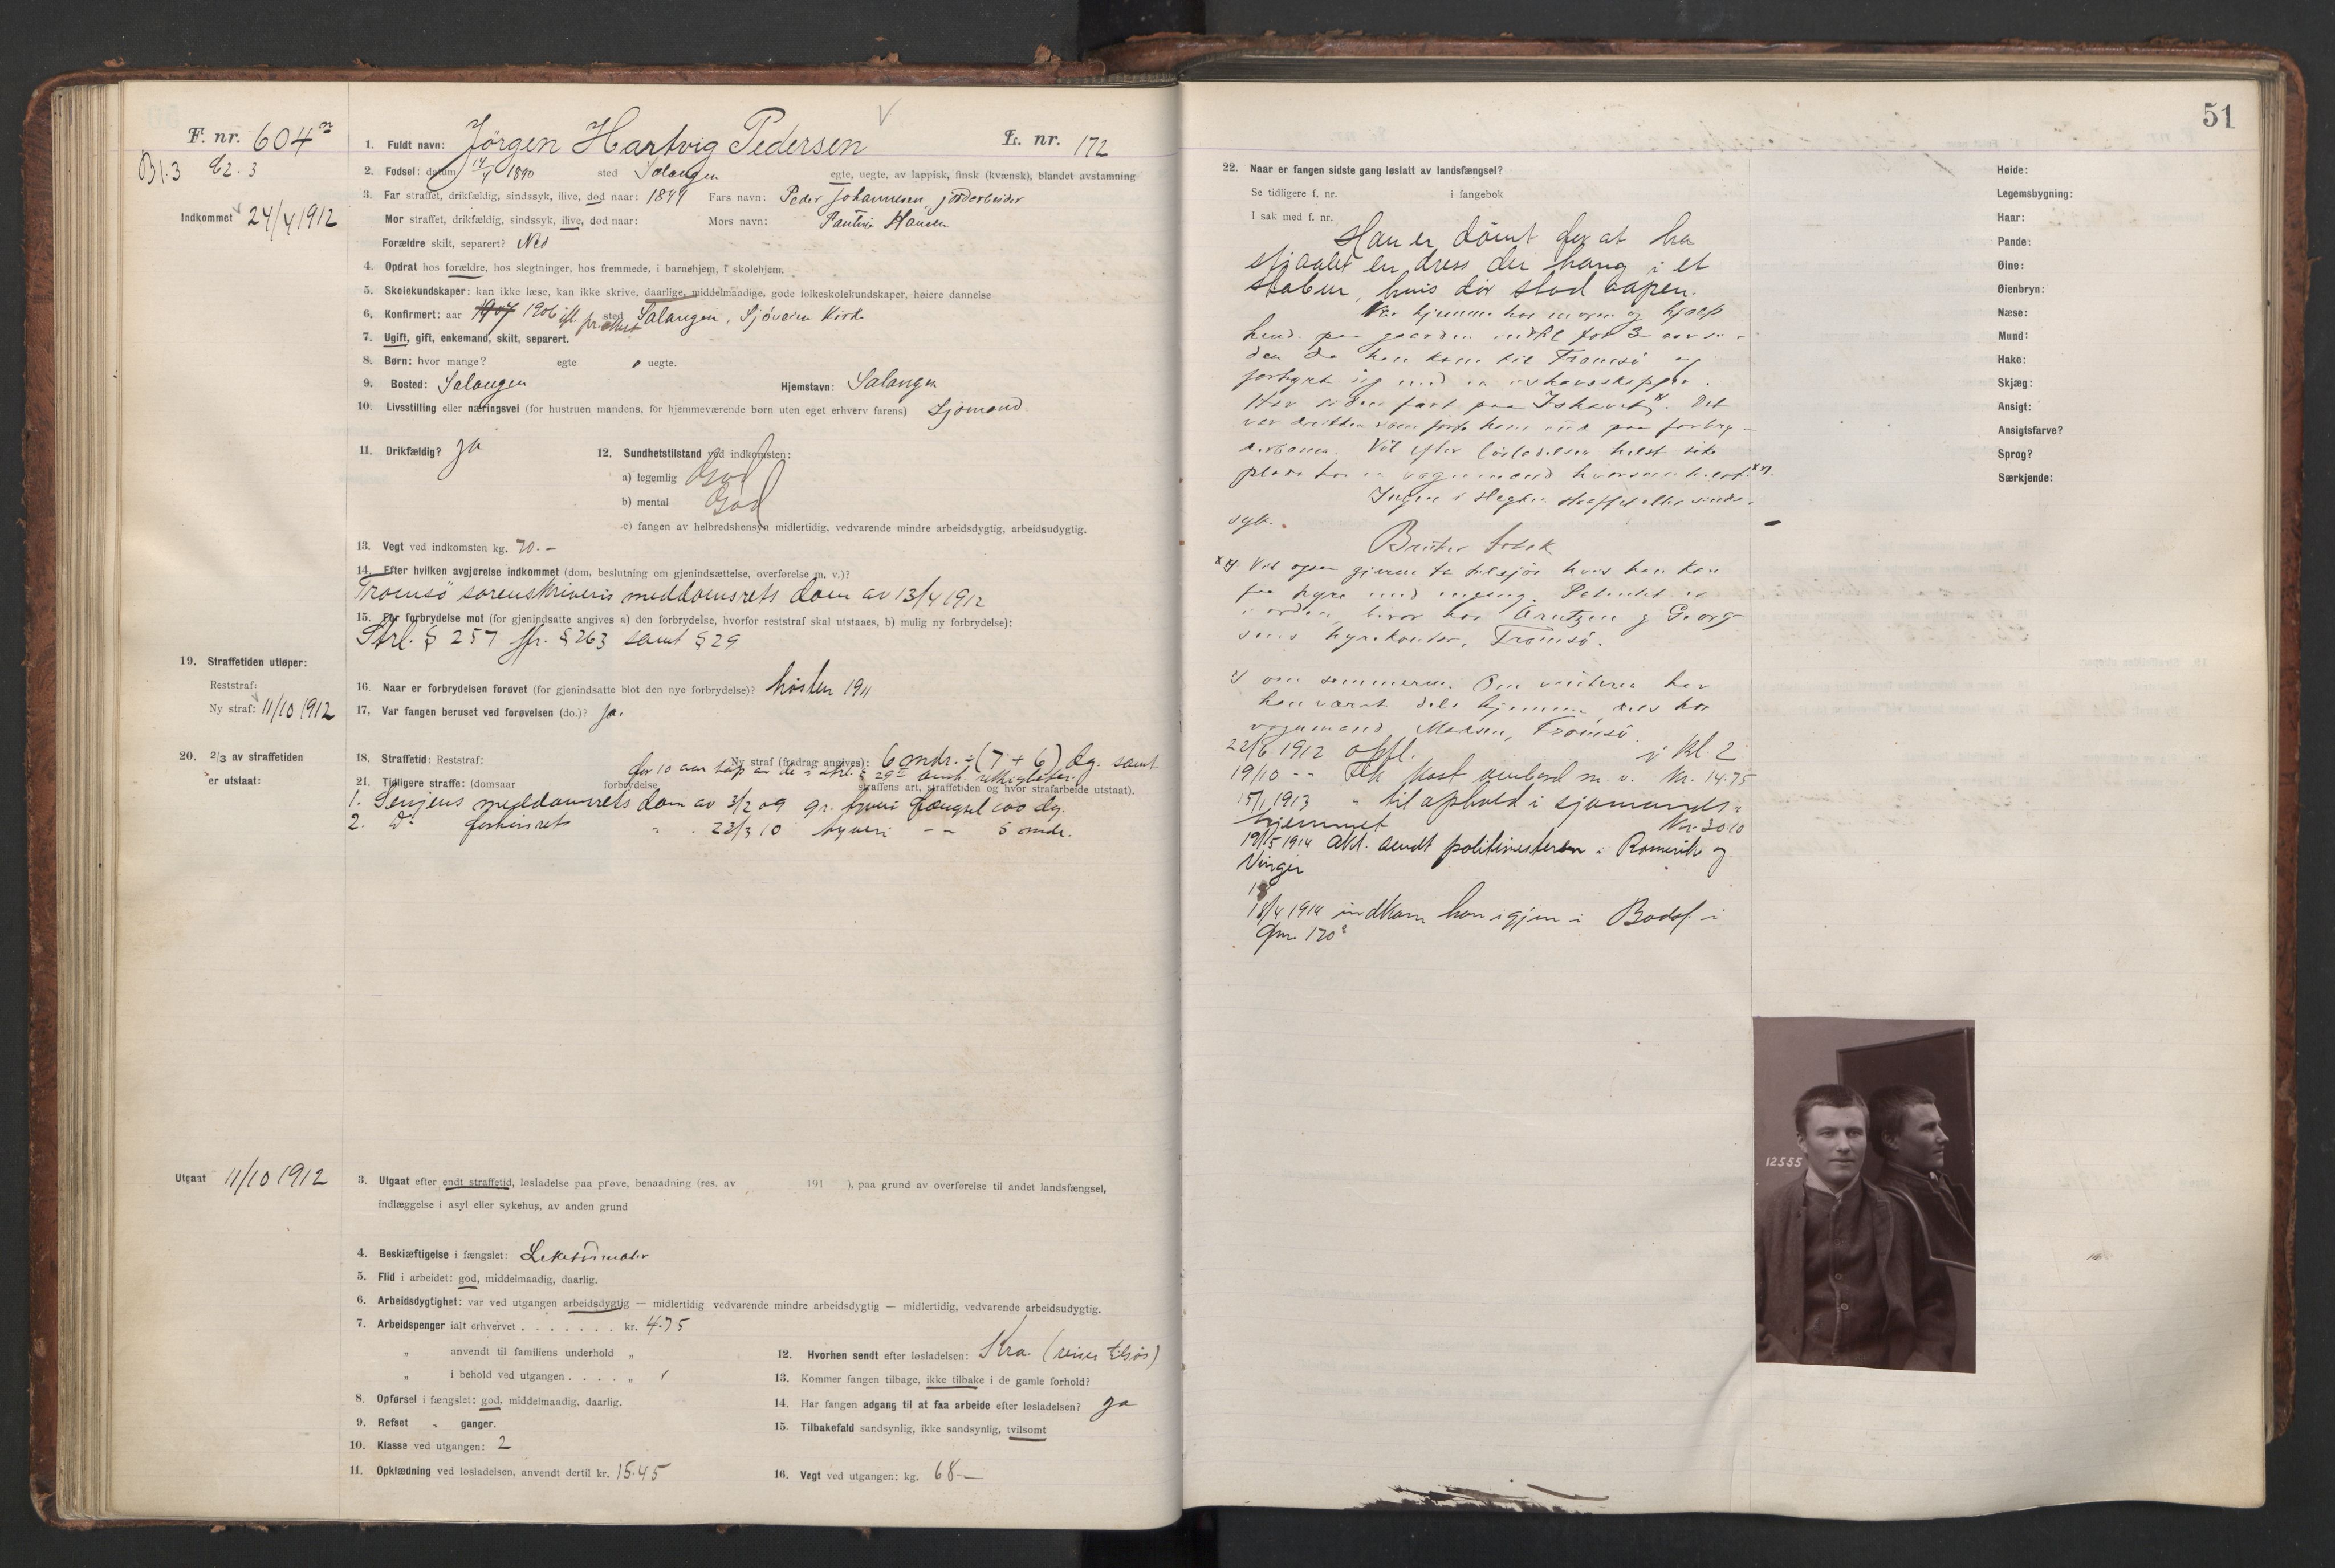 F. nr. 604
L. nr. 172
Bl. 3
Indkommet 24/4 1912
1. Fuldt navn: Jörgen Hartvig Pedersen
2. Fodsel: datum 14/4 1890 sted Salangen egte, uegte, av lappisk, finsk (kvænsk), blandet avstamning
3. Far straffet, drikfældig, sindssyk, ilive, død naar: 1899 Fars navn: Peder Johannesen, jordarbeider
Mor straffet, drikfældig, sindssyk, ilive, død naar: Mors navn: Pauline Hansen
Forældre skilt, separert? Nei
4. Opdrat hos forældre, hos slegtninger, hos fremmede, i barnehjem, i skolehjem.
5. Skolekundskaper: kan ikke læse, kan ikke skrive, daarlige, middelmaadige, gode folkeskolekundskaper, høiere dannelse
6. Konfirmert: aar 1907 1906 ifl. pr.attest sted Salangen, Sjöveien Kirke
7. Ugift, gift, enkemand, skilt, separert.
8. Børn: hvor mange? egte 0 uegte.
9. Bosted: Salangen Hjemstavn: Salangen
10. Livsstilling eller næringsvei (for hustruen mandens, for hjemmeværende børn uten eget erhverv farens) Sjömand
11. Drikfældig? ja
12. Sundhetstilstand ved indkomsten:
a) legemlig God
b) mental God
c) fangen av helbredshensyn midlertidig, vedvarende mindre arbeidsdygtig, arbeidsudygtig.
13. Vegt ved indkomsten kg. 70.-
14. Efter hvilken avgjørelse indkommet (dom, beslutning om gjenindsættelse, overførelse m. v.)?
Tromsö sorenskriveris meddomsrets dom av 13/4 1912
15. For forbrydelse mot (for gjenindsatte angives a) den forbrydelse, hvorfor reststraf skal utstaaes, b) mulig ny forbrydelse):
Strl. § 257 jfr. § 263 samt § 29
19. Straffetiden utløper:
Reststraf:
Ny straf: 11/10 1912
16. Naar er forbrydelsen forøvet (for gjenindsatte blot den nye forbrydelse)? hösten 1911
17. Var fangen beruset ved forøvelsen (do.)? ja.
20. 2/3 av straffetiden
er utstaat:
18. Straffetid: Reststraf: Ny straf (fradrag angives): 6 mdr. ÷ (7 + 6) dg. samt
for 10 aar tap av de i strl. § 29 omh. rettigheter.
21. Tidligere straffe: (domsaar forbrydelse, straffens art, straffetiden og hvor strafarbeide utstaat).
1. Senjens meddomsrets dom av 3/2 09 gr. tyveri fængsel 100 dg.
2. do forhörsrets " " 23/3 10 tyveri " " 5 mdr.
Utgaat 11/10 1912
3. Utgaat efter endt straffetid, løsladelse paa prøve, benaadning (res. av 191 ), paa grund av overførelse til andet landsfængsel,
indlæggelse i asyl eller sykehus, av anden grund
4. Beskjæftigelse i fængslet: Leketöimaler
5. Flid i arbeidet: god, middelmaadig, daarlig.
6. Arbeidsdygtighet: var ved utgangen arbeidsdygtig — midlertidig vedvarende mindre arbeidsdygtig — midlertidig, vedvarende arbeidsudygtig.
7. Arbeidspenger ialt erhvervet . . . . . . . kr. 4.75
" anvendt til familiens underhold "
" i behold ved utgangen . . . . . "
8. Opførsel i fængslet: god, middelmaadig, daarlig.
9. Refset " ganger.
10. Klasse ved utgangen: 2
11. Opklædning ved løsladelsen, anvendt dertil kr. 15.45
12. Hvorhen sendt efter løsladelsen: Kra. (reiser tilsjös)
13. Kommer fangen tilbage, ikke tilbake i de gamle forhold?
14. Har fangen adgang til at faa arbeide efter løsladelsen? ja
15. Tilbakefald sandsynlig, ikke sandsynlig, tvilsomt
16. Vegt ved utgangen: kg. 68.—
51
22. Naar er fangen sidste gang løslatt av landsfængsel?
Se tidligere f. nr. i fangebok
I sak med f. nr.
Han er dömt for at ha
stjaalet en dress der hang i et
stabur, hvis dör stod aapen.
Var hjemme hos moren og hjalp
hende paa gaarden indtil for 3 aar si-
den da han kom til Tromsö og
forhyret sig med en ishavsskipper.
Har siden fart paa Ishavet x). Det
var drikken som förte ham ind paa forbry-
derbanen. Vil efter lösladelsen helst söke
plass hos en vognmand hvorsomhelst xx).
Ingen i slegten straffet eller sinds-
syk.
Bruker tobak
xx) Vil ogsaa gjerne ta tilsjös hvis han kan
faa hyre med engang. Papirer
i orden, beror hos Arntzen & Georg-
sens hyrekontor, Tromsö.
x) om sommeren. Om vinteren har
han været dels hjemme dels hos
vognmand Madsen, Tromsö.
22/6 1912 opfl. i Kl. 2
19/10 " " kost ombord m. v. Kr. 14.75
15/1 1913 " til ophold i sjömands-
hjemmet Kr. 30.10
19/5 1914 akt. sendt politimesteren i Romerike og
Vinger
18/4 1914 indkom han igjen i Bodsf. i
fnr. 170
Høide:
Legemsbygning:
Haar:
Pande:
Øine:
Øienbryn:
Næse:
Mund:
Hake:
Skjæg:
Ansigt:
Ansigtsfarve?
Sprog?
Særkjende:
12555